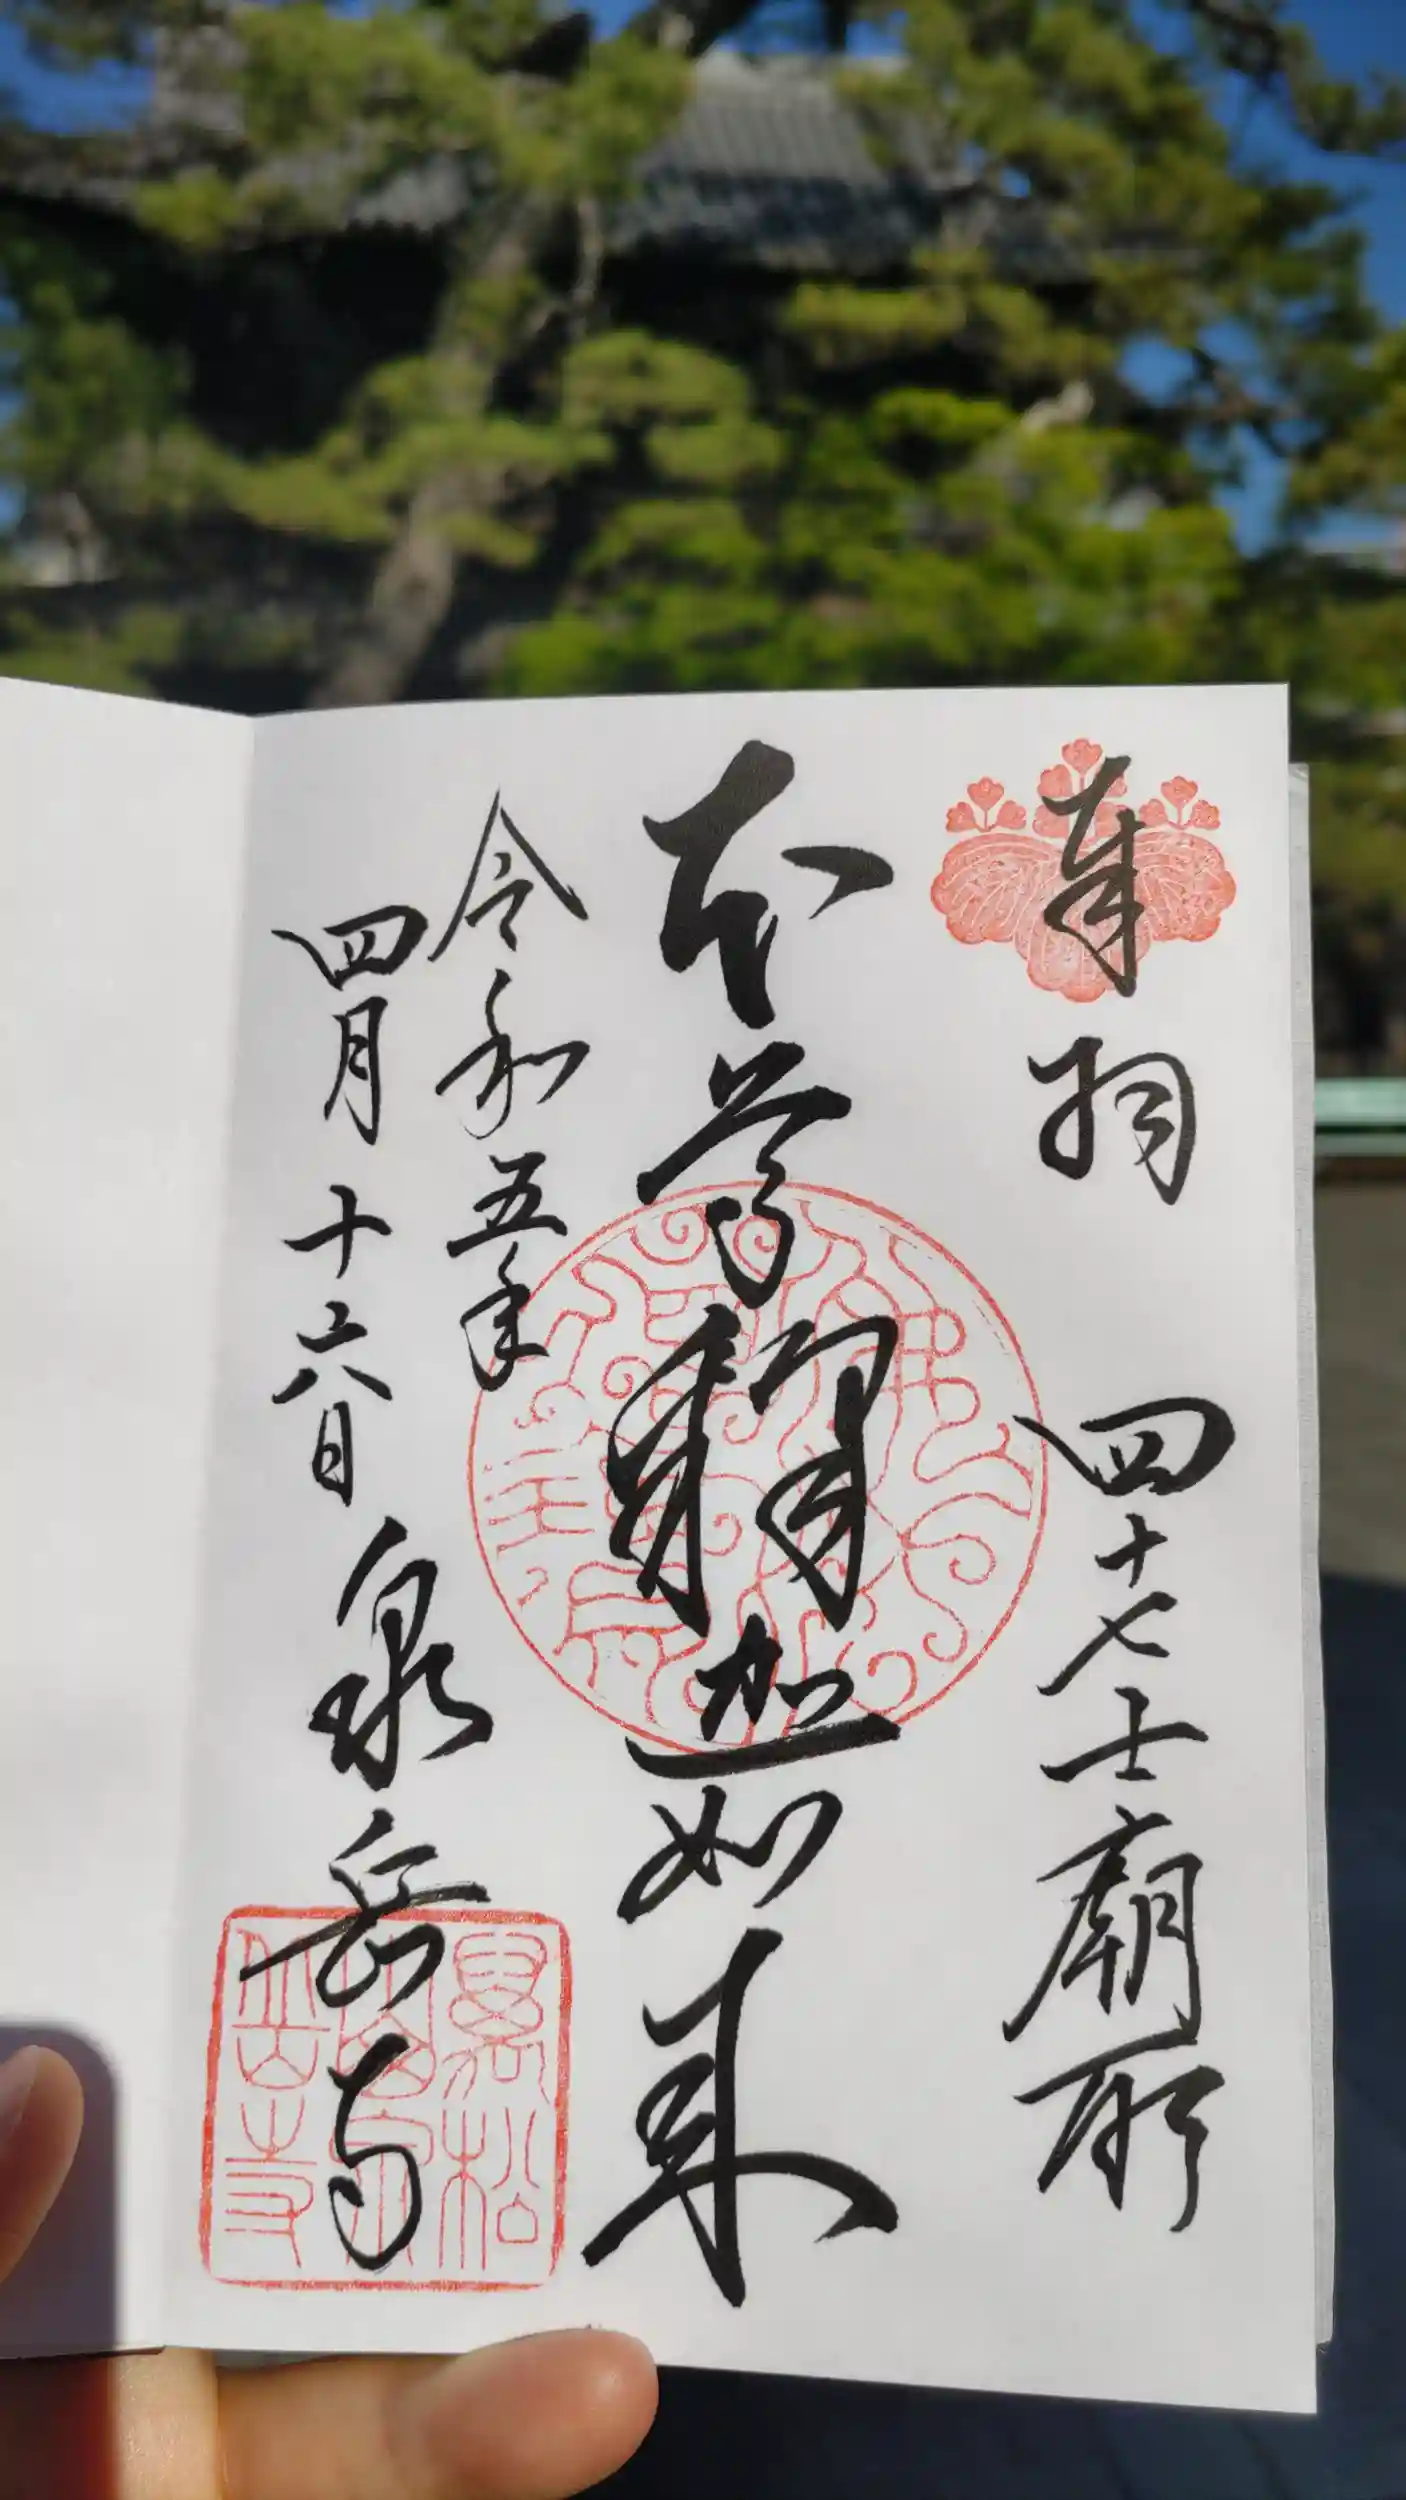 奉拝 四十七士廟所
本尊釋迦如来
令和五年
四月十六日 泉岳寺
萬松
泉岳寺